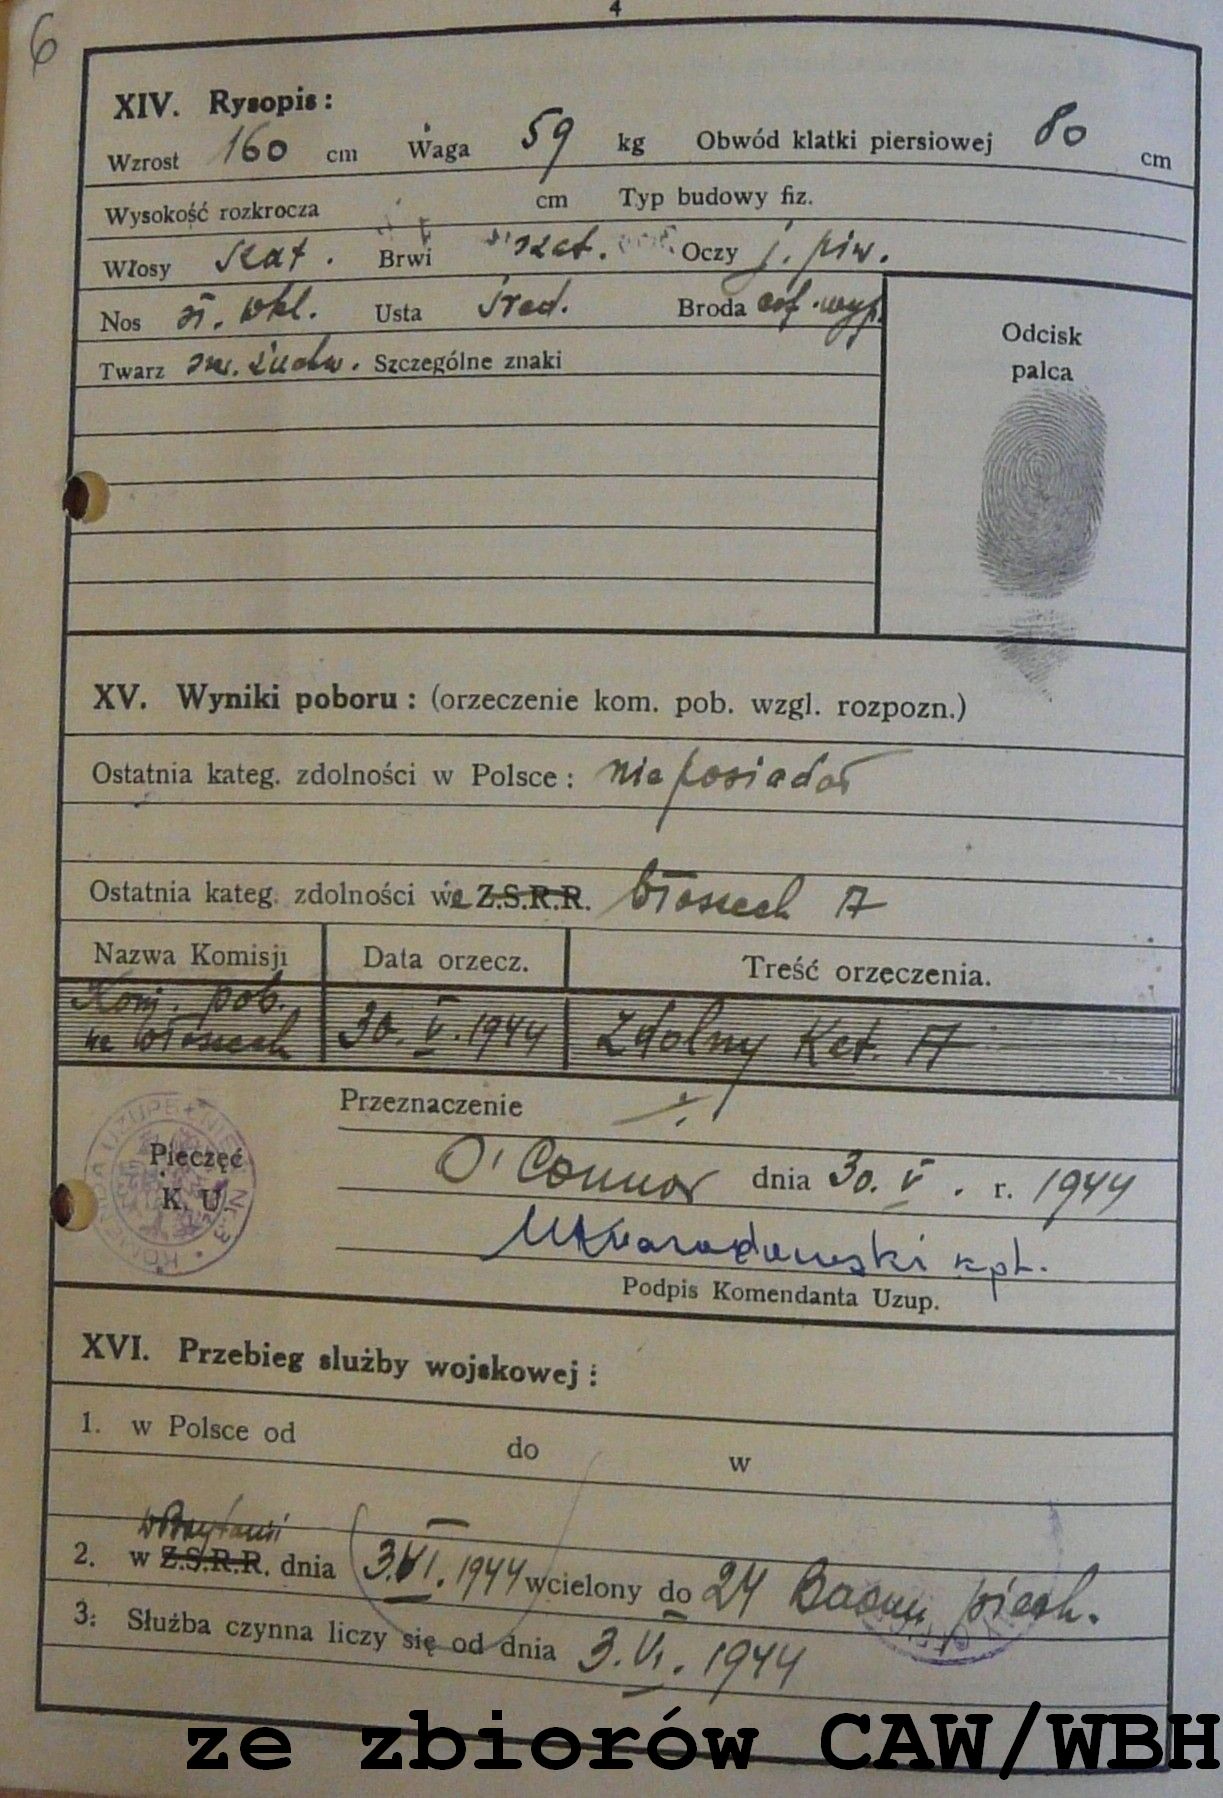 4
6
XIV. Rysopis:
Wzrost 160 cm Waga 59 kg Obwód klatki piersiowej 80 cm
Wysokość rozkrocza cm Typ budowy fiz.
Włosy szat. Brwi szat. Oczy j. piw.
Nos śr. wkl. Usta śred. Broda
Twarz Szczególne znaki
Odcisk
palca
XV. Wyniki poboru: (orzeczenie kom. pob. wzgl. rozpozn.)
Ostatnia kateg. zdolności w Polsce: nie posiadał
Ostatnia kateg. zdolności we Z.S.R.R. Włoszech A
Nazwa Komisji Data orzecz. Treść orzęczenia.
Kom. pob.
we Włoszech 30.V.1944 Zdolny Kat. A
Przeznaczenie
Pieczęć
K. U.
KOMENDA UZUPEŁNIEŃ Nr. 3
O'Connor dnia 30.V. r. 1944
kpt.
Podpis Komendanta Uzup.
XVI. Przebieg służby wojskowej:
1. w Polsce od do w
2. w Z.S.R.R. dnia 3.VI.1944 wcielony do 24 Baonu piech.
3. Służba czynna liczy się od dnia 3.VI.1944
ze zbiorów CAW/WBH